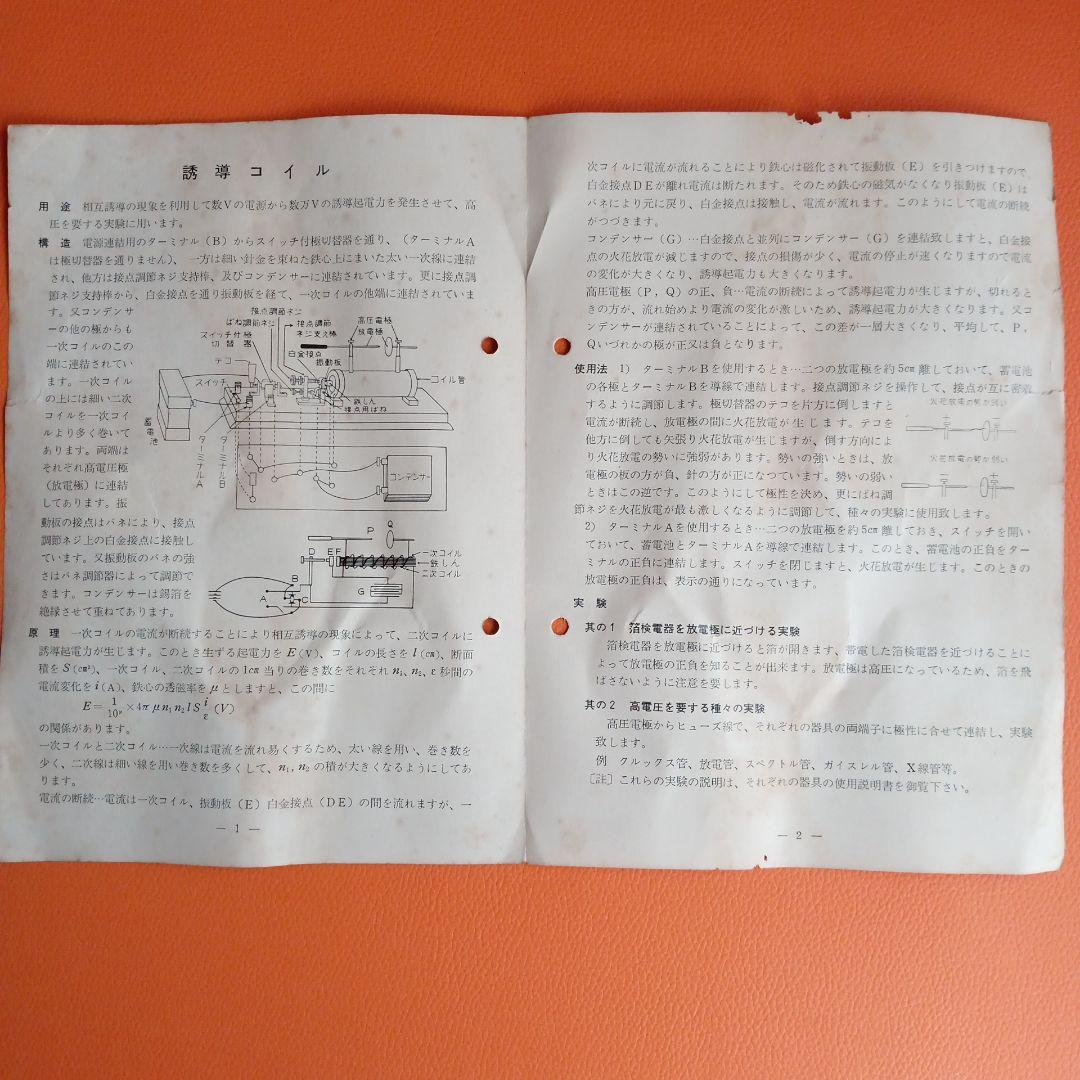 誘導コイル
用途 相互誘導の現象を利用して数Vの電源から数万Vの誘導起電力を発生させて、高
圧を要する実験に用います。
構造 電源連結用のターミナル（B）からスイッチ付極切替器を通り、（ターミナルA
は極切替器を通りません）、一方は細い針金を束ねた鉄心上にまいた太い一次線に連結
され、他方は接点調節ネジ支持棒、及びコンデンサーに連結されています。更に接点調
節ネジ支持棒から、白金接点を通り振動板を経て、一次コイルの他端に連結されていま
す。又コンデンサ
ーの他の極からも
一次コイルのこの
端に連結されてい
ます。一次コイル
の上には細い二次
コイルを一次コイ
ルより多く巻いて
あります。両端は
それぞれ高電圧極
（放電極）に連結
してあります。振
動板の接点はバネにより、接点
調節ネジ上の白金接点に接触し
ています。又振動板のバネの強
さはバネ調節器によって調節で
きます。コンデンサーは錫箔を
絶縁させて重ねてあります。
接点調節ネジ
ばね調節ネジ
スイッチ付極
切替器
接点調節
ネジ支え棒
高圧電極
放電極
白金接点
振動板
テコ
スイッチ
コイル管
鉄しん
接点用ばね
蓄電池
ターミナルA
ターミナルB
コンデンサー
P
Q
D
E
F
一次コイル
鉄しん
二次コイル
G
A
B
C
原理 一次コイルの電流が断続することにより相互誘導の現象によって、二次コイルに
誘導起電力が生じます。このとき生ずる起電力を E(V)、コイルの長さを l(㎝)、断面
積を S(㎝²)、一次コイル、二次コイルの1㎝当りの巻き数をそれぞれ n₁, n₂、ε秒間の
電流変化を i(A)、鉄心の透磁率を μ としますと、この間に
E=1/10⁹×4π μ n₁ n₂ l S i/ε (V)
の関係があります。
一次コイルと二次コイル…一次線は電流を流れ易くするため、太い線を用い、巻き数を
少く、二次線は細い線を用い巻き数を多くして、n₁, n₂ の積が大きくなるようにしてあ
ります。
電流の断続…電流は一次コイル、振動板（E）白金接点（DE）の間を流れますが、一
— 1 —
次コイルに電流が流れることにより鉄心は磁化されて振動板（E）を引きつけますので、
白金接点DEが離れ電流は断たれます。そのため鉄心の磁気がなくなり振動板（E）は
バネにより元に戻り、白金接点は接触し、電流が流れます。このようにして電流の断続
がつづきます。
コンデンサー（G）…白金接点と並列にコンデンサー（G）を連結致しますと、白金接
点の火花放電が減じますので、接点の損傷が少く、電流の停止が速くなりますので電流
の変化が大きくなり、誘導起電力も大きくなります。
高圧電極（P，Q）の正、負…電流の断続によって誘導起電力が生じますが、切れると
きの方が、流れ始めより電流の変化が激しいため、誘導起電力が大きくなります。又コ
ンデンサーが連結されていることによって、この差が一層大きくなり、平均して、P，
Qいづれかの極が正又は負となります。
使用法 1） ターミナルBを使用するとき…二つの放電極を約5㎝離しておいて、蓄電池
の各極とターミナルBを導線で連結します。接点調節ネジを操作して、接点が互に密着
するように調節します。極切替器のテコを片方に倒しますと
電流が断続し、放電極の間に火花放電が生じます。テコを
他方に倒しても矢張り火花放電が生じますが、倒す方向によ
り火花放電の勢いに強弱があります。勢いの強いときは、放
電極の板の方が負、針の方が正になつています。勢いの弱い
ときはこの逆です。このようにして極性を決め、更にばね調
節ネジを火花放電が最も激しくなるように調節して、種々の実験に使用致します。
火花放電の勢が強い
火花放電の勢が弱い
2） ターミナルAを使用するとき…二つの放電極を約5㎝離しておき、スイッチを開い
ておいて、蓄電池とターミナルAを導線で連結します。このとき、蓄電池の正負をター
ミナルの正負に連結します。スイッチを閉じますと、火花放電が生じます。このときの
放電極の正負は、表示の通りになっています。
実験
其の1 箔検電器を放電極に近づける実験
箔検電器を放電極に近づけると箔が開きます、帯電した箔検電器を近づけることに
よって放電極の正負を知ることが出来ます。放電極は高圧になっているため、箔を飛
ばさないように注意を要します。
其の2 高電圧を要する種々の実験
高圧電極からヒューズ線で、それぞれの器具の両端子に極性に合せて連結し、実験
致します。
例 クルックス管、放電管、スペクトル管、ガイスレル管、X線管等。
〔註〕これらの実験の説明は、それぞれの器具の使用説明書を御覧下さい。
— 2 —